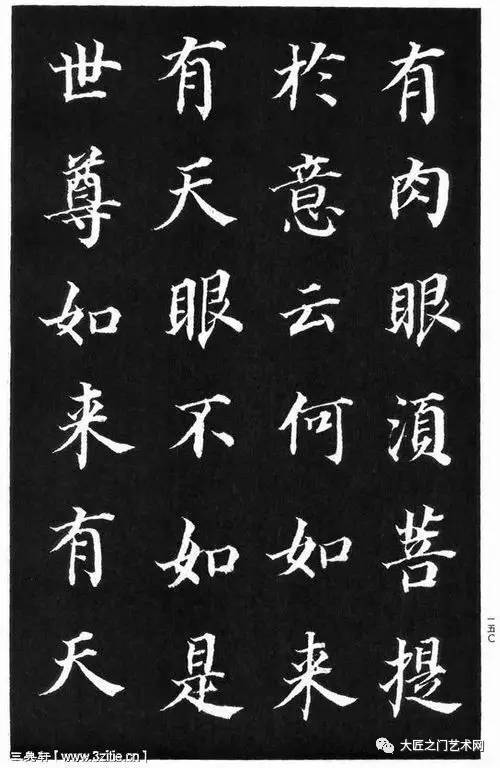 有肉眼須菩提
於意云何如来
有天眼不如是
世尊如来有天
一五〇
三典轩【www.3zitie.cn】
大匠之门艺术网